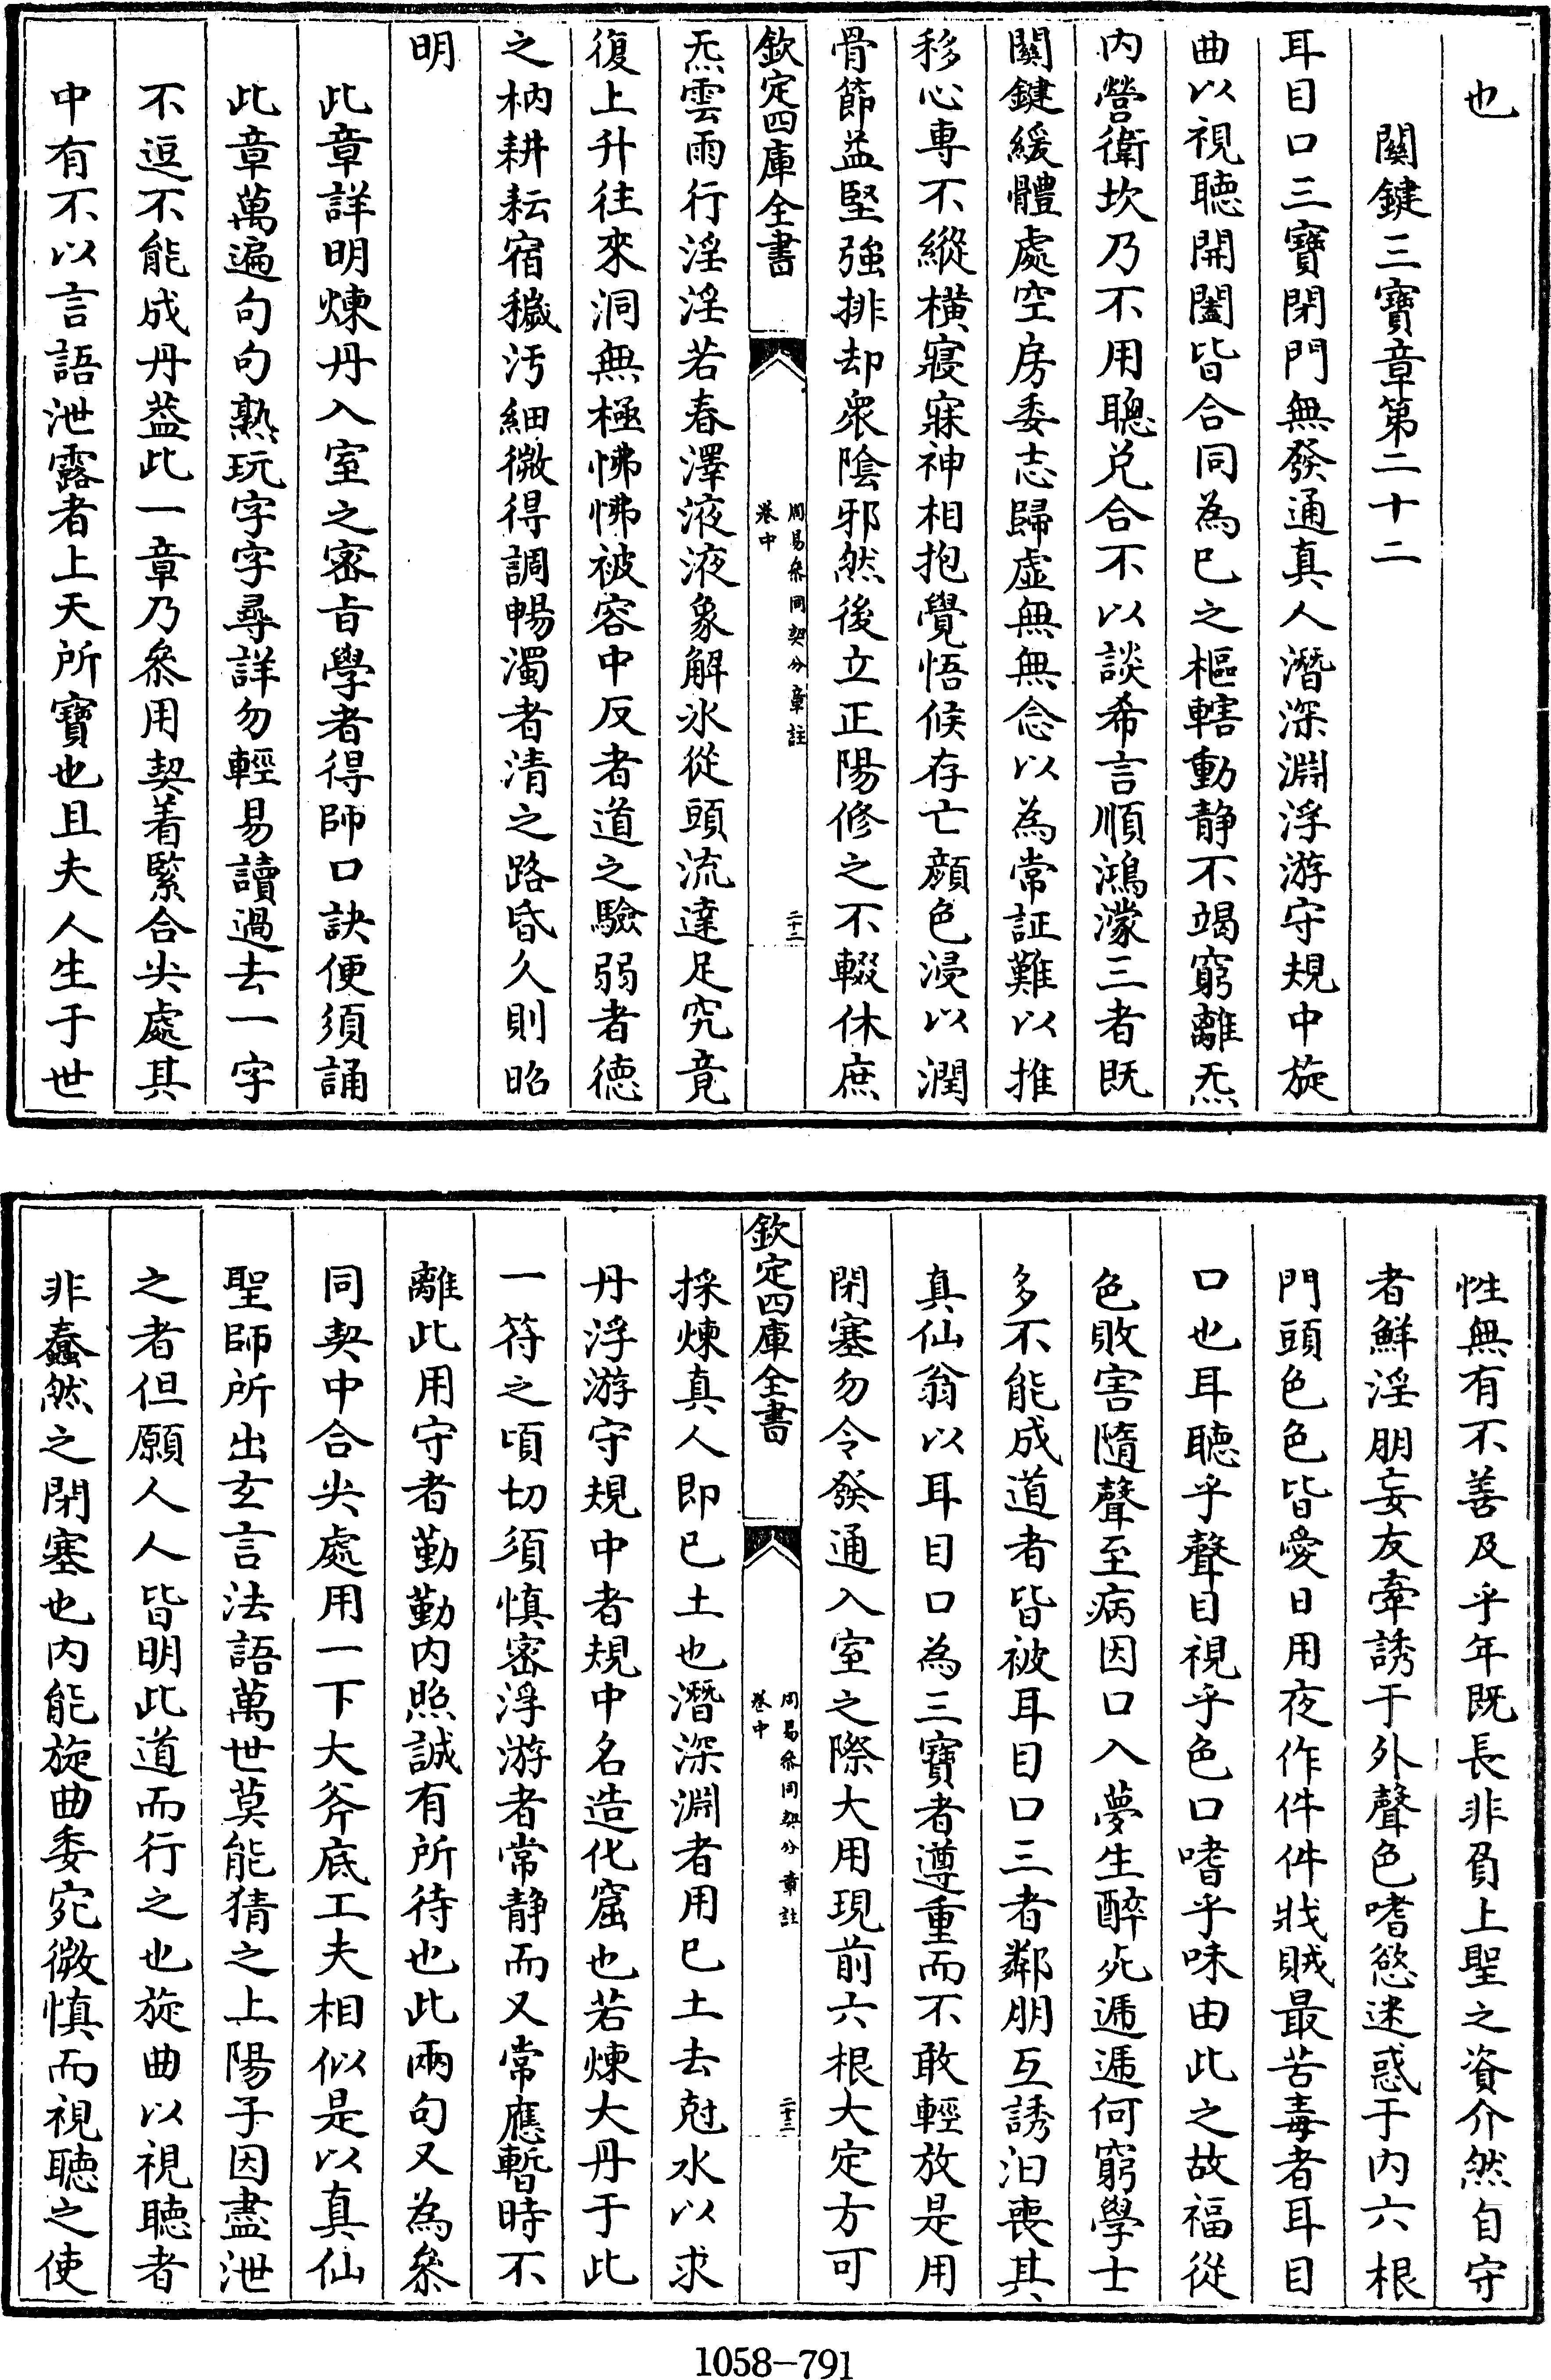 也
關鍵三寶章第二十二
耳目口三寶閉門無發通真人潛深淵浮游守規中旋
曲以視聽開闔皆合同為已之樞轄動静不竭窮離炁
内營衛坎乃不用聰兑合不以談希言順鴻濛三者既
關鍵緩體處空房委志歸虚無無念以為常証難以推
移心專不縱横寢寐神相抱覺悟候存亡顔色浸以潤
骨節益堅強排却衆陰邪然後立正陽修之不輟休庶
欽定四庫全書
周易參同契分章註
卷中
二十二
炁雲雨行淫淫若春澤液液象解氷從頭流達足究竟
復上升往來洞無極怫怫被容中反者道之驗弱者徳
之柄耕耘宿穢汚細微得調暢濁者清之路昏久則昭
明
此章詳明煉丹入室之密旨學者得師口訣便須誦
此章萬遍句句熟玩字字尋詳勿輕易讀過去一字
不逗不能成丹葢此一章乃叅用契着緊合尖處其
中有不以言語泄露者上天所寶也且夫人生于世
性無有不善及乎年既長非負上聖之資介然自守
者鮮淫朋妄友牽誘于外聲色嗜慾迷惑于内六根
門頭色色皆愛日用夜作件件戕賊最苦毒者耳目
口也耳聽乎聲目視乎色口嗜乎味由此之故福從
色敗害隨聲至病因口入夢生醉死逓逓何窮學士
多不能成道者皆被耳目口三者鄰朋互誘汨喪其
真仙翁以耳目口為三寶者遵重而不敢輕放是用
閉塞勿令發通入室之際大用現前六根大定方可
欽定四庫全書
周易參同契分章註
卷中
二十三
採煉真人即已土也潛深淵者用已土去尅水以求
丹浮游守規中者規中名造化窟也若煉大丹于此
一符之頃切須慎密浮游者常静而又常應暫時不
離此用守者勤勤内照誠有所待也此兩句又為叅
同契中合尖處用一下大斧底工夫相似是以真仙
聖師所出玄言法語萬世莫能猜之上陽子因盡泄
之者但願人人皆明此道而行之也旋曲以視聽者
非蠢然之閉塞也内能旋曲委宛微慎而視聽之使
1058-791